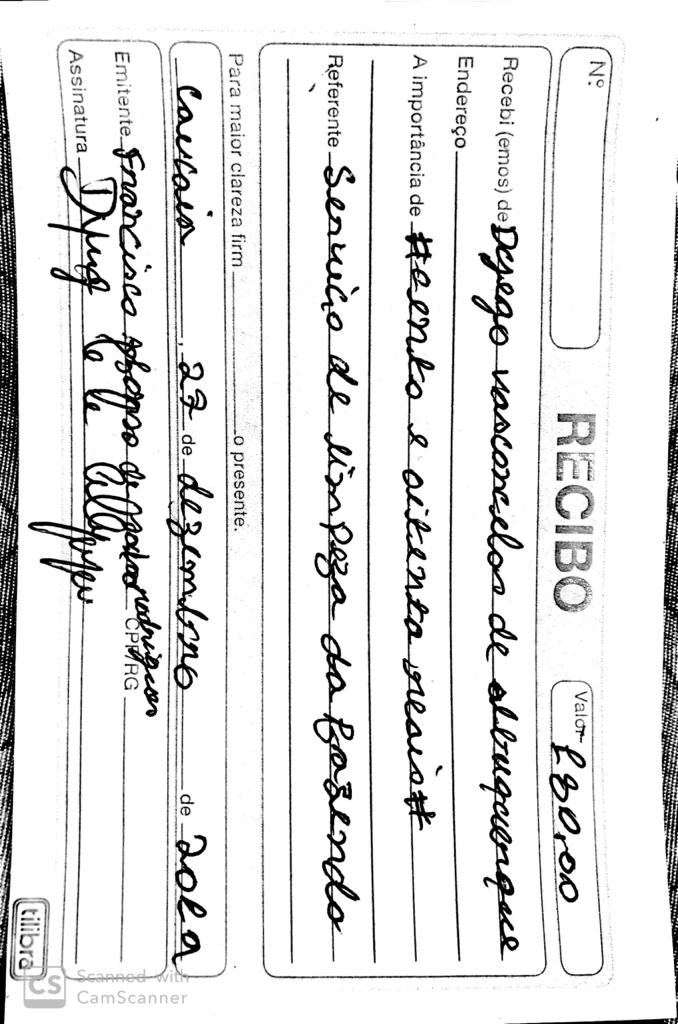 Nº
RECIBO
Valor 180,00
Recebi (emos) de Dyego vasconcelos de albuquerque
Endereço
A importância de #cento e oitenta reais#
Referente Serviço de limpeza da fazenda
Para maior clareza firm o presente.
caucaia, 27 de dezembro de 2021
Emitente Francisco Afonso de rodrigues CPF/RG
Assinatura
tilibra
CS Scanned with
CamScanner